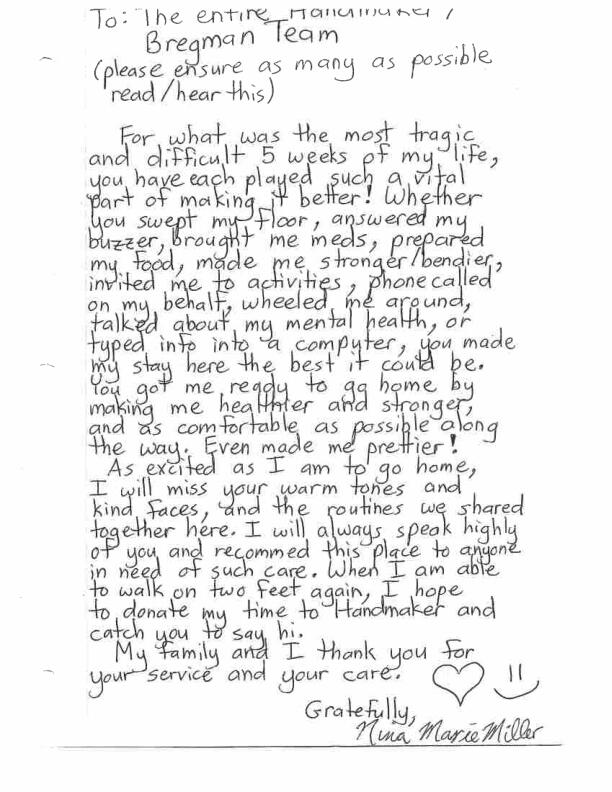 To: The entire Handmaker /
Bregman Team
(please ensure as many as possible
read/hear this)
For what was the most tragic
and difficult 5 weeks of my life,
you have each played such a vital
part of making it better! Whether
you swept my floor, answered my
buzzer, brought me meds, prepared
my food, made me stronger/bendier,
invited me to activities, phone called
on my behalf, wheeled me around,
talked about my mental health, or
typed info into a computer, you made
my stay here the best it could be.
You got me ready to go home by
making me healthier and stronger,
and as comfortable as possible along
the way. Even made me prettier!
As excited as I am to go home,
I will miss your warm tones and
kind faces, and the routines we shared
together here. I will always speak highly
of you and recommed this place to anyone
in need of such care. When I am able
to walk on two feet again, I hope
to donate my time to Handmaker and
catch you to say hi.
My family and I thank you for
your service and your care.
Gratefully,
Nina Marie Miller